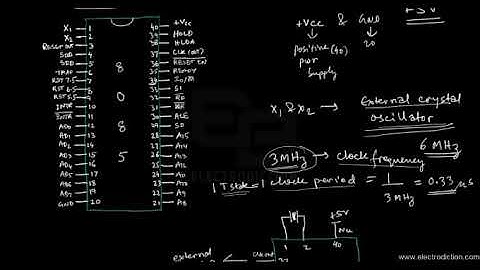 +5V
X1 1 40 +Vcc
X2 2 39 HOLD
Reset out 3 38 HLDA
SOD 4 37 CLK (out)
SID 5 36 RESET IN
TRAP 6 35 READY
RST 7.5 7 34 IO/M
RST 6.5 8 33 S1
RST 5.5 9 32 RD
INTR 10 31 WR
INTA 11 30 ALE
AD0 12 29 S0
AD1 13 28 A15
AD2 14 27 A14
AD3 15 26 A13
AD4 16 25 A12
AD5 17 24 A11
AD6 18 23 A10
AD7 19 22 A9
GND 20 21 A8
8
0
8
5
+Vcc & GND
positive (40) 20
pwr
supply
X1 & X2 → External crystal
oscillator
6 MHz
3 MHz → clock frequency
1 T state = 1 clock period = 1/3MHz = 0.33 μs
+5V
1 2 40
external
www.electrodiction.com